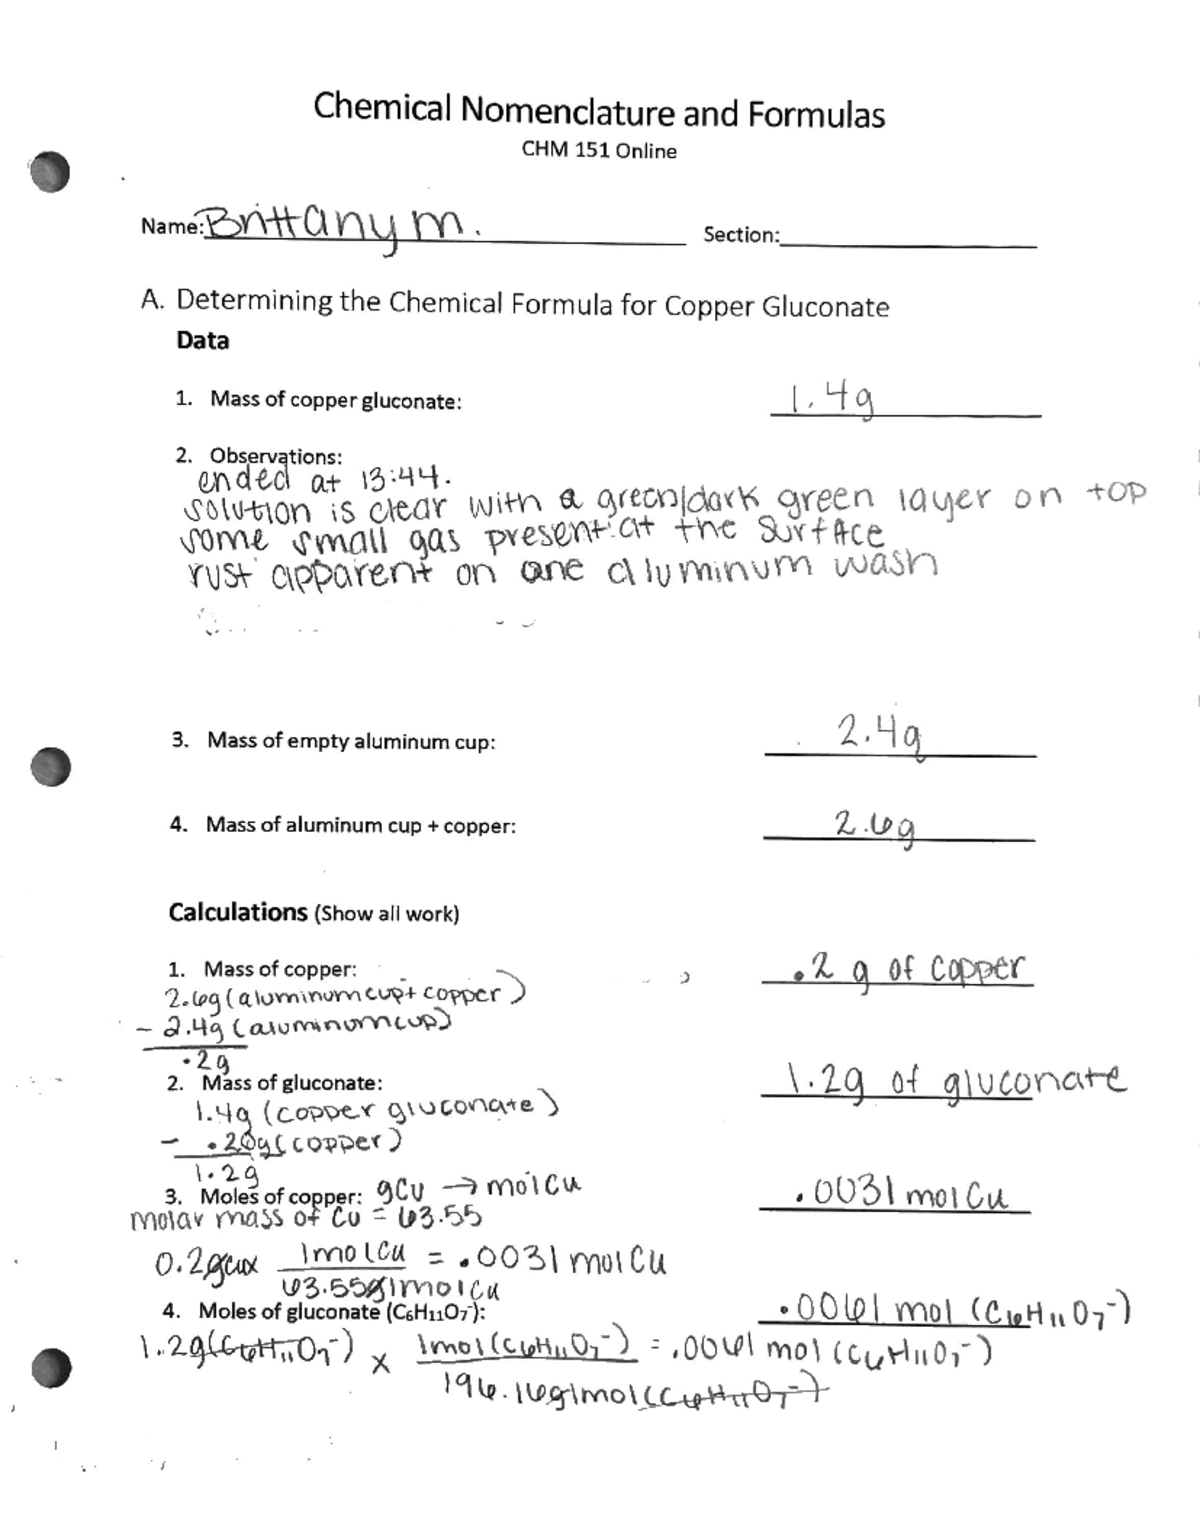 Chemical Nomenclature and Formulas
CHM 151 Online
Name: Brittany m. Section:
A. Determining the Chemical Formula for Copper Gluconate
Data
1. Mass of copper gluconate: 1.4g
2. Observations:
ended at 13:44.
solution is clear with a green/dark green layer on top
some small gas present at the surface
rust apparent on one aluminum wash
3. Mass of empty aluminum cup: 2.4g
4. Mass of aluminum cup + copper: 2.6g
Calculations (Show all work)
1. Mass of copper: .2 g of copper
2.6g (aluminum cup + copper)
- 2.4g (aluminum cup)
.2g
2. Mass of gluconate: 1.2g of gluconate
1.4g (copper gluconate)
- .20g (copper)
1.2g
3. Moles of copper: gCu → molCu .0031 mol Cu
molar mass of Cu = 63.55
0.2gcu x 1mol Cu = .0031 mol Cu
63.55g/molCu
4. Moles of gluconate (C₆H₁₁O₇⁻): .0061 mol (C₆H₁₁O₇⁻)
1.2g(C₆H₁₁O₇⁻) x 1mol (C₆H₁₁O₇⁻) = .0061 mol (C₆H₁₁O₇⁻)
196.16g/mol(C₆H₁₁O₇⁻)